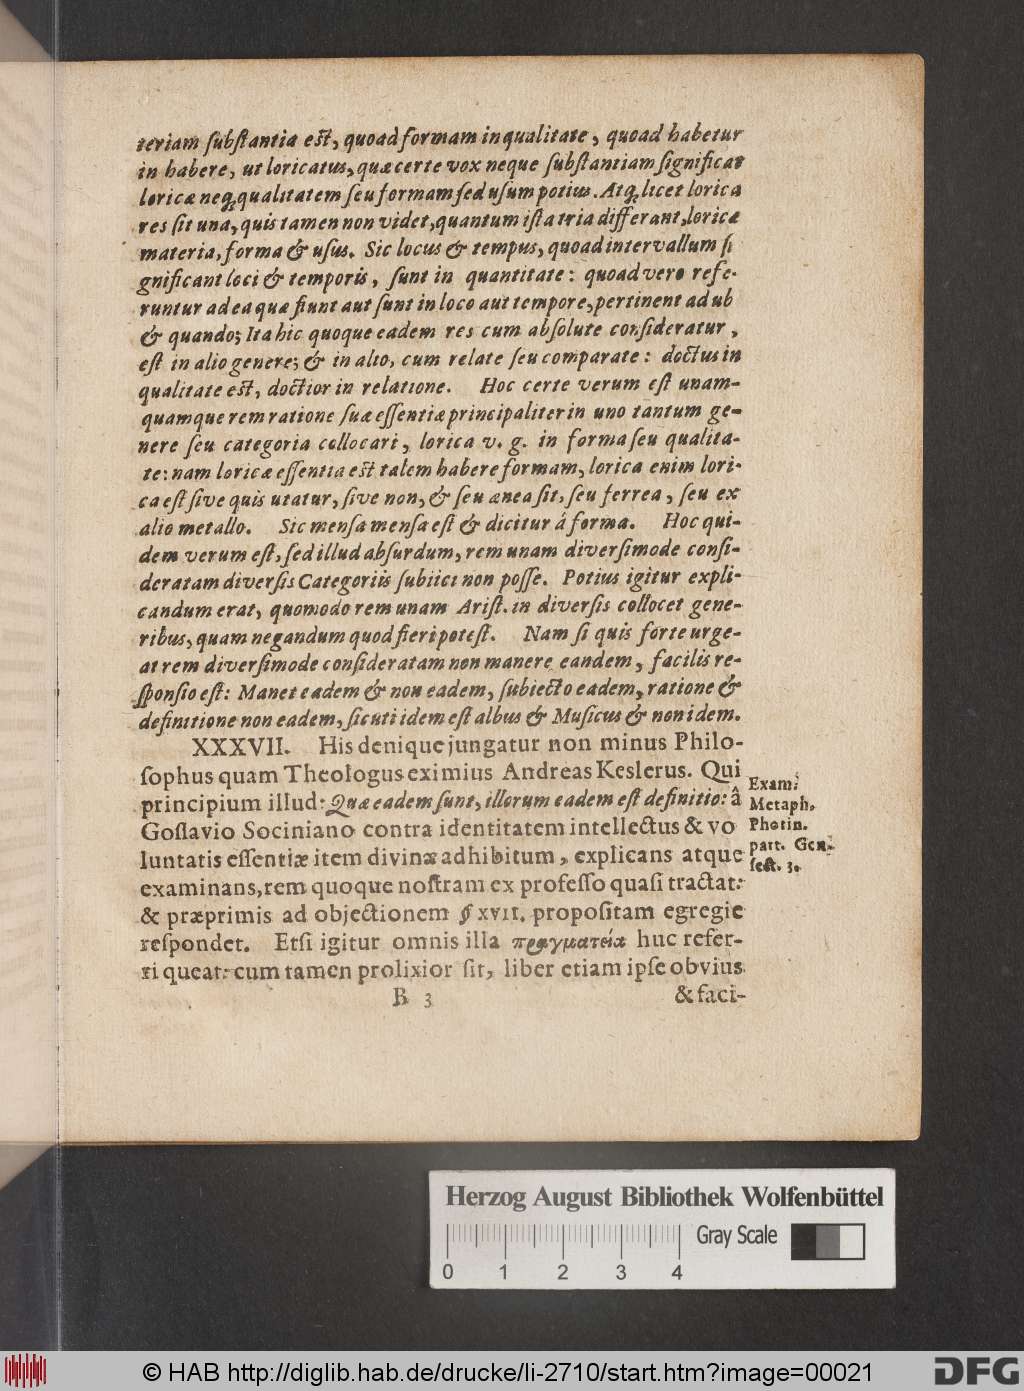 teriam ſubſtantia eſt, quoad formam in qualitate, quoad habetur
in habere, ut loricatus, quæ certe vox neque ſubſtantiam ſignificat
loricæ neq; qualitatem ſeu formam ſed uſum potius. Atq; licet lorica
res ſit una, quis tamen non videt, quantum iſta tria differant, loricæ
materia, forma & uſus. Sic locus & tempus, quoad intervallum ſi
gnificant loci & temporis, ſunt in quantitate: quoad vero refe-
runtur ad ea quæ fiunt aut ſunt in loco aut tempore, pertinent ad ub
& quando; Ita hic quoque eadem res cum abſolute conſideratur,
eſt in alio genere; & in alio, cum relate ſeu comparate: doctus in
qualitate eſt, doctior in relatione. Hoc certe verum eſt unam-
quamque rem ratione ſuæ eſſentiæ principaliter in uno tantum ge-
nere ſeu categoria collocari, lorica v. g. in forma ſeu qualita-
te: nam loricæ eſſentia eſt talem habere formam, lorica enim lori-
ca eſt ſive quis utatur, ſive non, & ſeu ænea ſit, ſeu ferrea, ſeu ex
alio metallo. Sic menſa menſa eſt & dicitur á forma. Hoc qui-
dem verum eſt, ſed illud abſurdum, rem unam diverſimode conſi-
deratam diverſis Categoriis ſubiici non poſſe. Potius igitur expli-
candum erat, quomodo rem unam Ariſt. in diverſis collocet gene-
ribus, quam negandum quod fieri poteſt. Nam ſi quis forte urge-
at rem diverſimode conſideratam non manere eandem, facilis re-
ſponſio eſt: Manet eadem & non eadem, ſubiecto eadem, ratione &
definitione non eadem, ſicuti idem eſt albus & Muſicus & non idem.
XXXVII. His denique jungatur non minus Philo-
ſophus quam Theologus eximius Andreas Keslerus. Qui
principium illud: Quæ eadem ſunt, illorum eadem eſt definitio: â
Goſlavio Sociniano contra identitatem intellectus & vo
luntatis eſſentiæ item divinæ adhibitum, explicans atque
examinans, rem quoque noſtram ex profeſſo quaſi tractat:
& præprimis ad objectionem § XVII. propoſitam egregie
reſpondet. Etſi igitur omnis illa πραγματεία huc refer-
ri queat: cum tamen prolixior ſit, liber etiam ipſe obvius
Exam:
Metaph.
Photin.
part. Gen.
ſect. 3.
B 3
& faci-
Herzog August Bibliothek Wolfenbüttel
Gray Scale
0 1 2 3 4
© HAB http://diglib.hab.de/drucke/li-2710/start.htm?image=00021
DFG